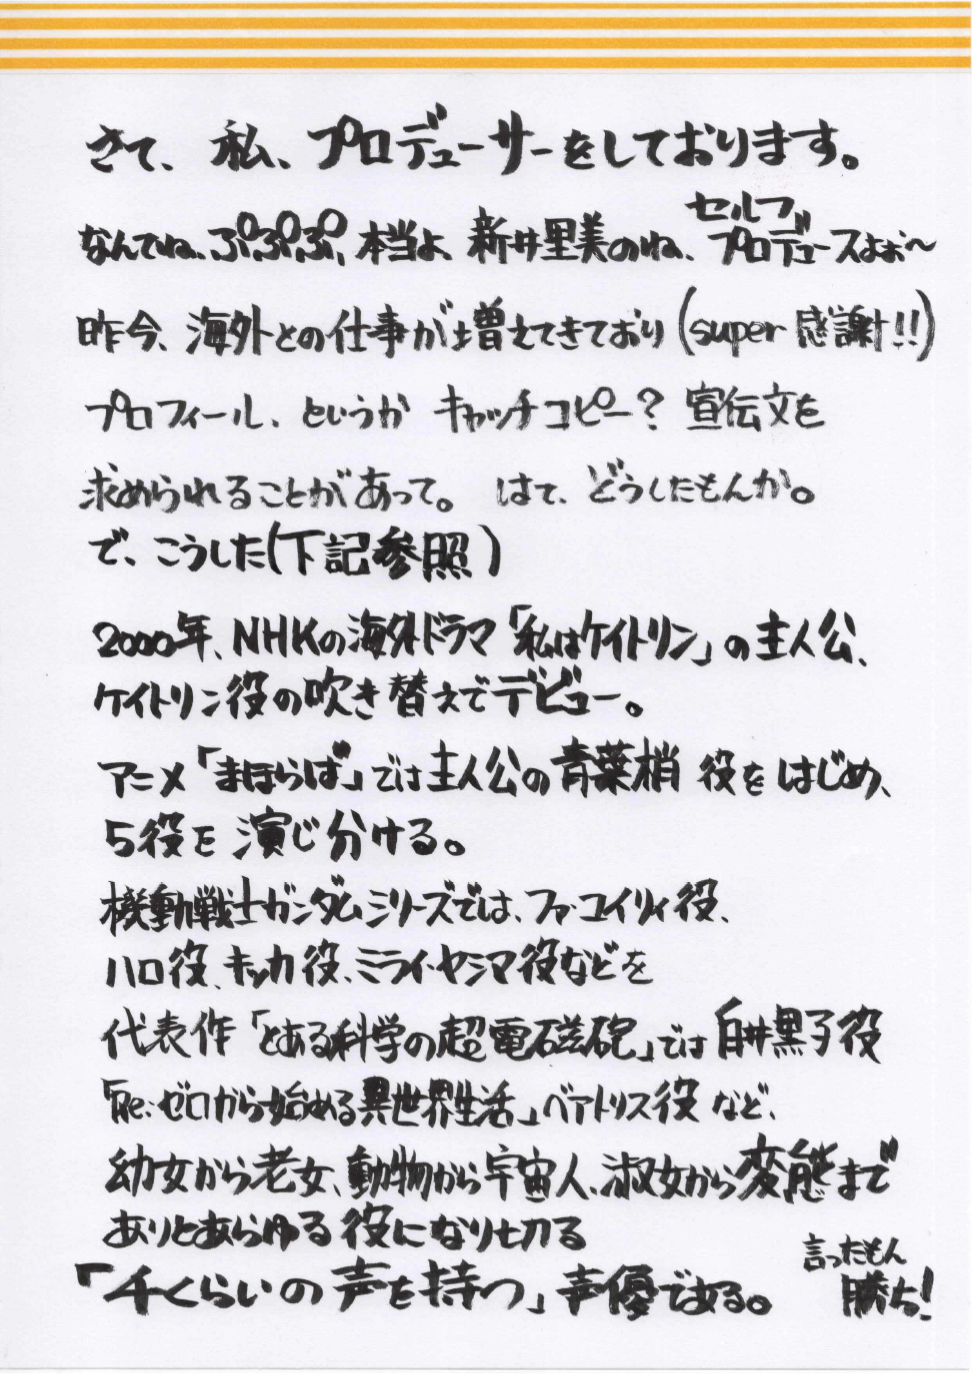 さて、私、プロデューサーをしております。
なんてね、ぷぷぷ、本当よ、新井里美のね、セルフプロデュースよぉ〜
昨今、海外との仕事が増えてきており(super 感謝!!)
プロフィール、というか キャッチコピー？ 宣伝文を
求められることがあって。 はて、どうしたもんか。
で、こうした(下記参照)
2000年、NHKの海外ドラマ「私はケイトリン」の主人公、
ケイトリン役の吹き替えでデビュー。
アニメ「まほらば」では主人公の青葉梢 役をはじめ、
5役を 演じ分ける。
機動戦士ガンダムシリーズでは、ファ・ユイリィ役、
ハロ役、キッカ役、ミライ・ヤシマ役などを
代表作「とある科学の超電磁砲」では 白井黒子役
「Re:ゼロから始める異世界生活」ベアトリス役 など、
幼女から老女、動物から宇宙人、淑女から変態まで
ありとあらゆる 役になり切る
「千くらいの声を持つ」声優である。
言ったもん
勝ち!